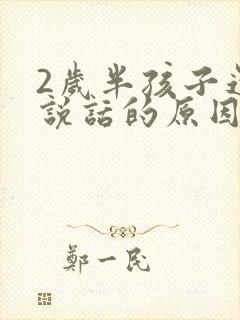 2歲半孩子
說話的原因
鄭一民